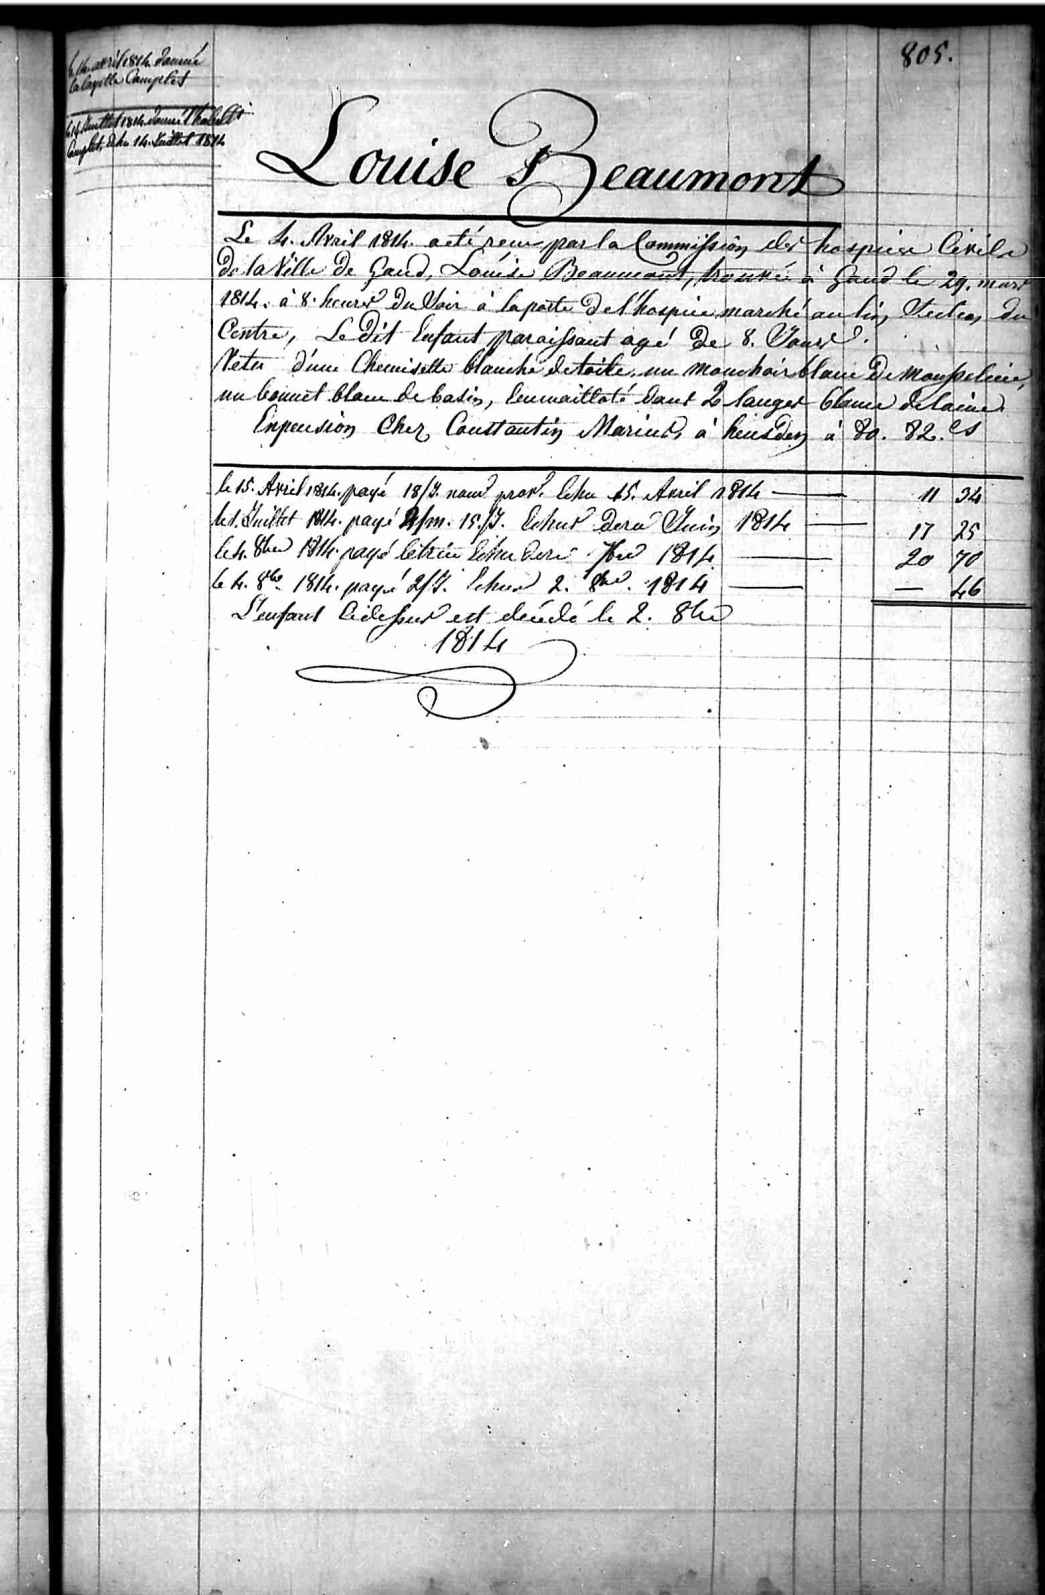 805.
le 14 avril 1814. donné
la layette Complet
le 14 Juillet 1814. donné l'habillt
Complet. Echu 14. Juillet 1814
Louise Beaumont
Le 4. Avril 1814. a été recu par la Commission des hospices Civils
De la Ville de Gand, Louise Beaumont, trouvée à Gand le 29. mars
1814. à 8. heures Du Soir à la porte De l'hospice marché au lin, Section du
Centre, Le Dit Enfant paraissant agé De 8. Jours.
Vetu d'une Chemisette blanche de toile, un mouchoir blanc De mousseline,
un bonnet blanc de basin, Emmailloté dans 2 langes blancs de laine.
En pension Chez Constantin à heusden à 80. 82. cs
le 15. Avril 1814. payé 18/J. Echu 15. Avril 1814 — 11 34
le 1. Juillet 1814. payé 2/m. 15/J. Echus dern Juin 1814 — 17 25
le 4. 8bre 1814. payé Echu dern 7bre 1814 — 20 70
le 4. 8bre 1814. payé 2/J. Echus 2. 8bre. 1814 — — 46
L'enfant Cidessus est décédé le 2. 8bre
1814